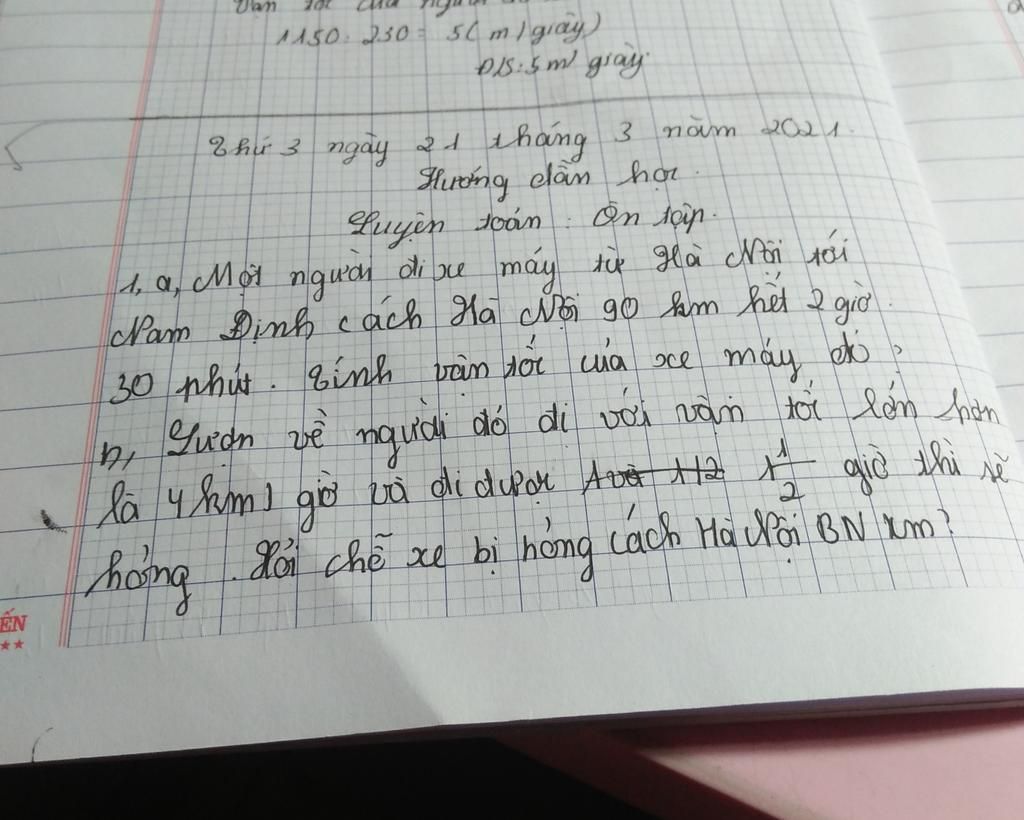 Vận tốc của người
1150: 230 = 5( m / giây)
Đ/S: 5 m/ giây
Thứ 3 ngày 21 tháng 3 năm 2021.
Hướng dẫn học.
Luyện toán: Ôn tập.
1, a, Một người đi xe máy từ Hà Nội tới
Nam Định, cách Hà Nội 90 km hết 2 giờ
30 phút. Tính vận tốc của xe máy đó?
b, Lượn về người đó đi với vận tốc lớn hơn
là 4 km/ giờ và đi được 1 1/2 giờ thì xe
hỏng. Hỏi chỗ xe bị hỏng cách Hà Nội BN km?
ẾN
★★